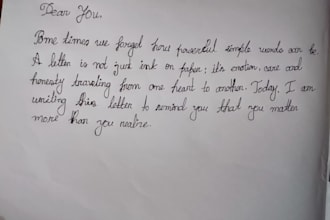 Dear You,
Some times we forget how powerful simple words can be.
A letter is not just ink on paper; it's emotion, care and
honesty traveling from one heart to another. Today, I am
writing this letter to remind you that you matter
more than you realize.